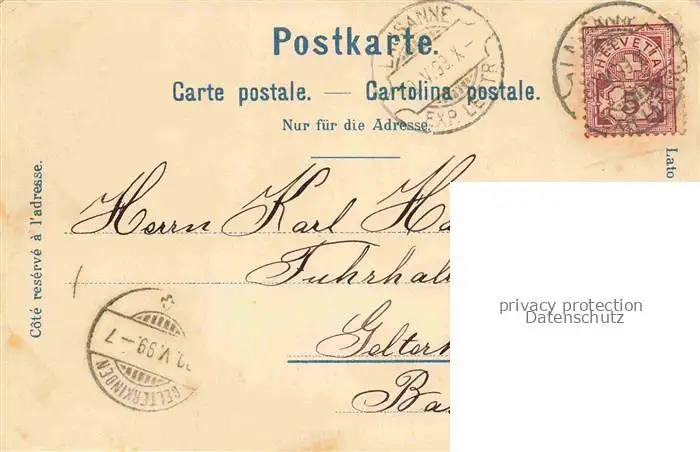 Postkarte.
Carte postale. — Cartolina postale.
Nur für die Adresse.
LAUSANNE
EXP. LETTR.
HELVETIA
5
Côté reservé à l'adresse.
Lato
Herrn Karl Ha
Fuhrhal
Gelter
Ba
GELTERKINDEN
V.99—7
privacy protection
Datenschutz